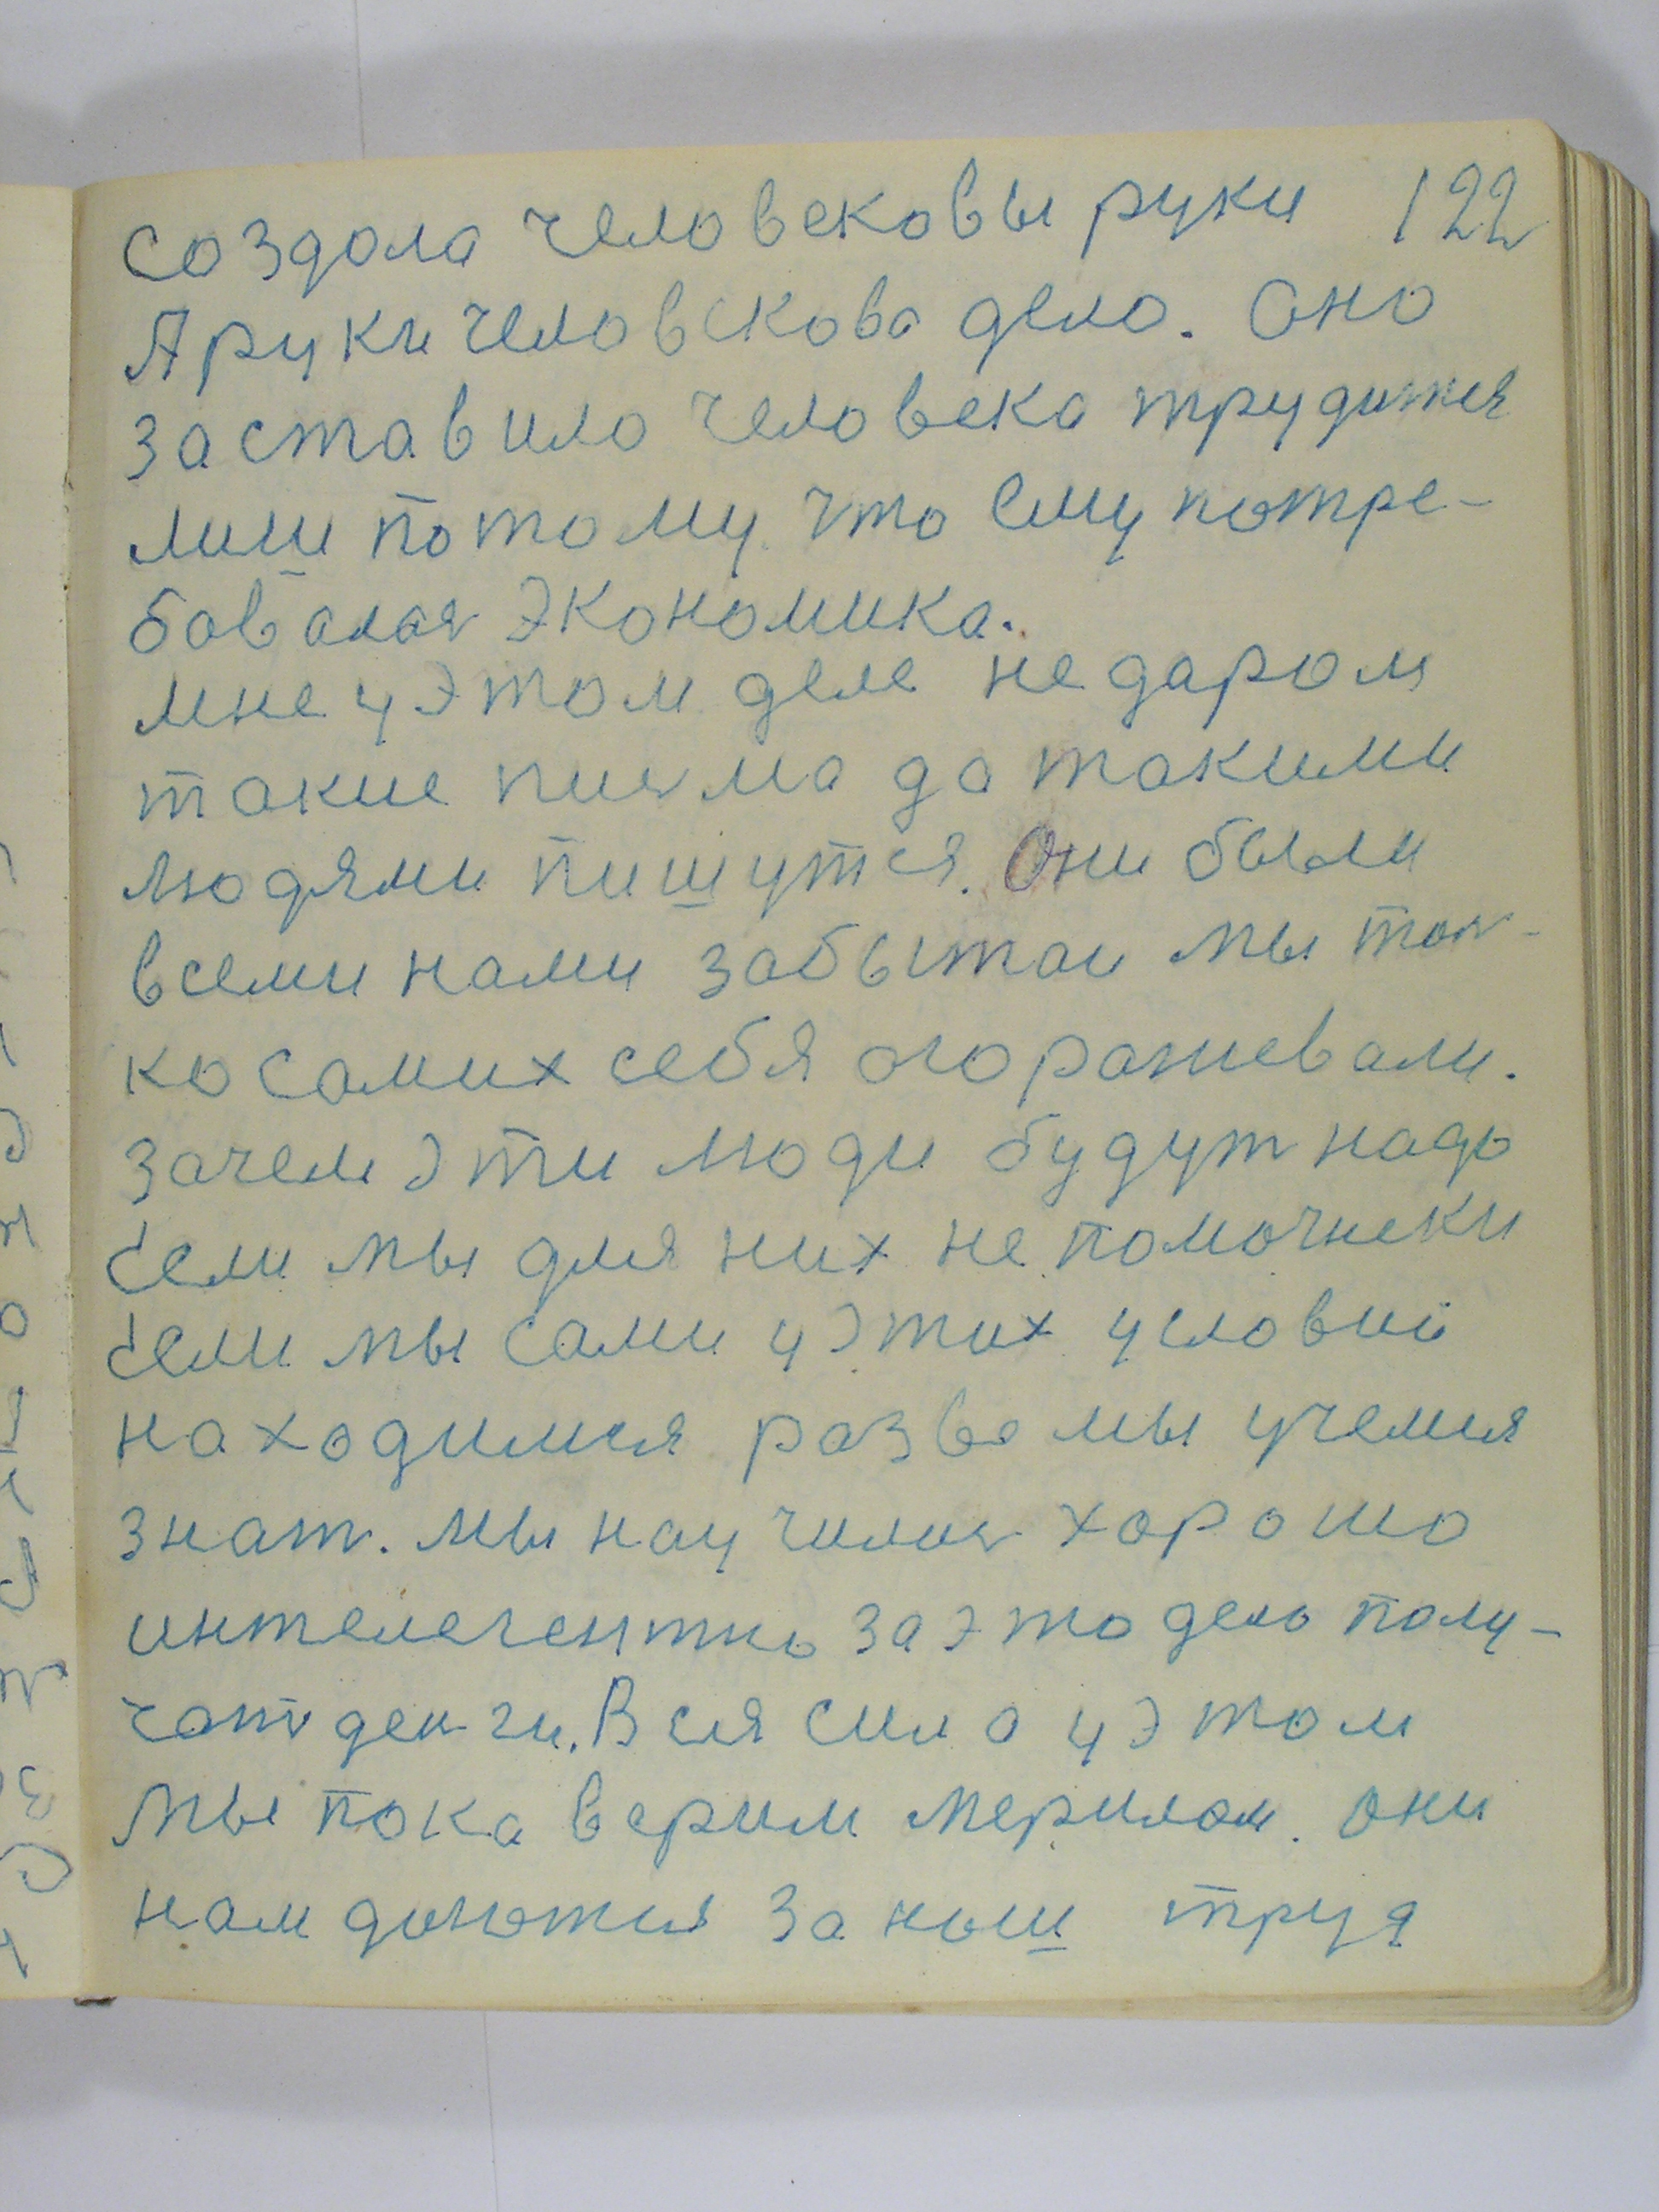 создала человековы руки 122
А руки человекова дело. Оно
заставило человека трудится
лиш потому что ему потре-
бовалась экономика.
мне у этом деле не даром
такие письма да такими
людями пишутся. Они были
всеми нами забытаи мы толь-
ко самих себя огораживали.
зачем эти люди будут надо
Если мы для них не помочнеки
Если мы сами у этих условий
находимся разве мы учемся
знат. мы научились хорошо
интелегентно за это дело полу-
чать деньги. Вся сила у этом
мы пока верим мерилом. они
нам даются за наш труд